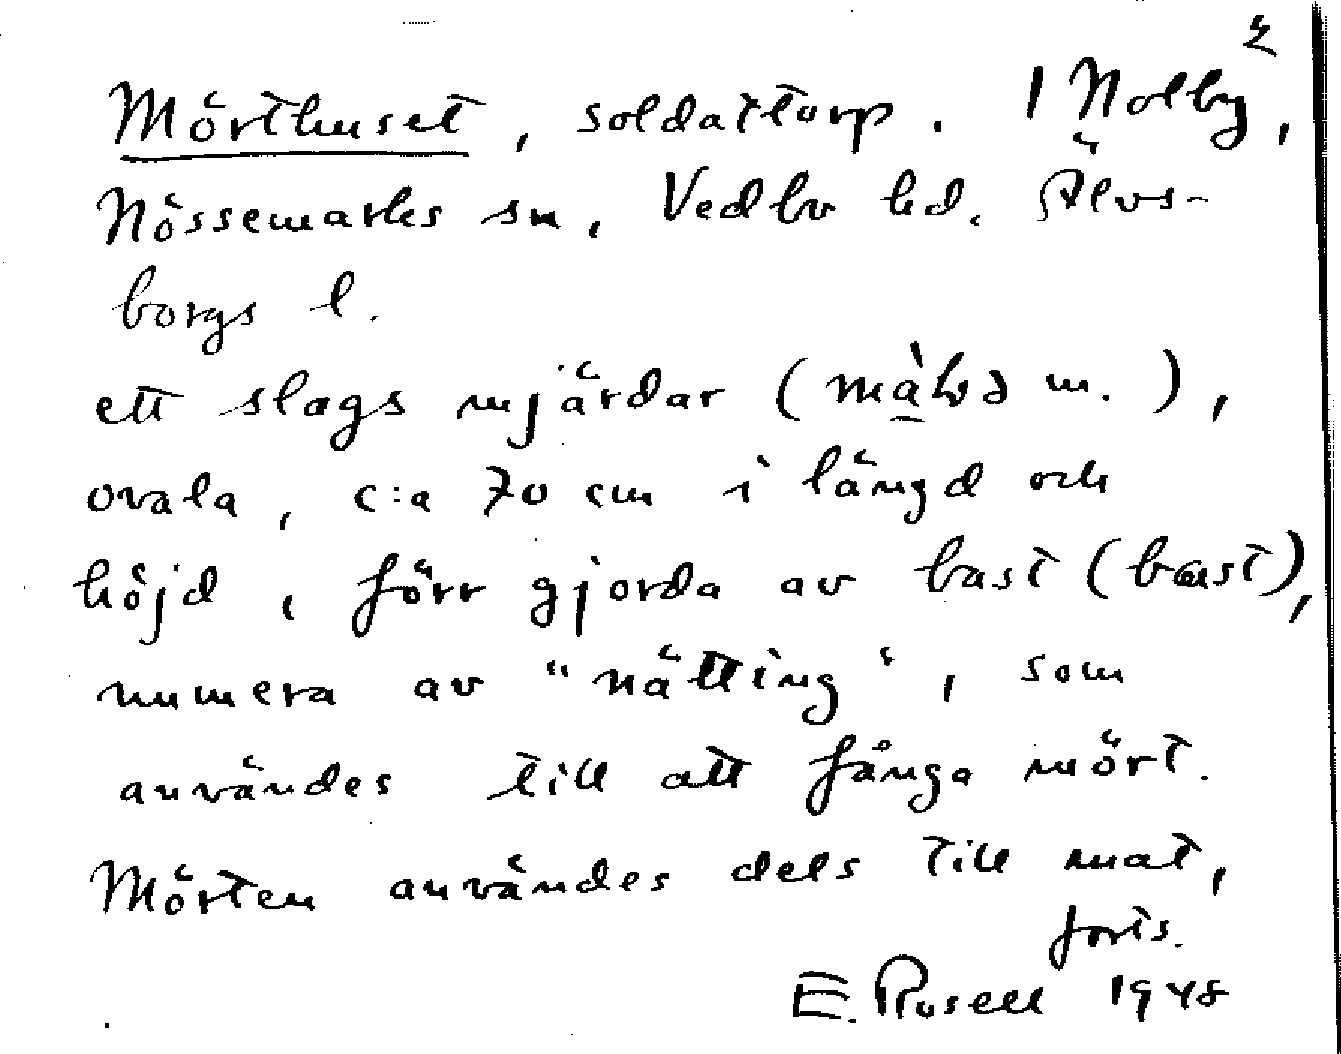 2
Mörthuset, soldattorp. 1 Nolby,
Nössemarks sn, Vedbo hd. Älvs-
borgs l.
ett slags mjärdar (m. ),
ovala, c:a 70 cm i längd och
höjd, förr gjorda av bast (bast),
numera av "nätting", som
användes till att fånga mört.
Mörten användes dels till mat,
forts.
E. Rosell 1948